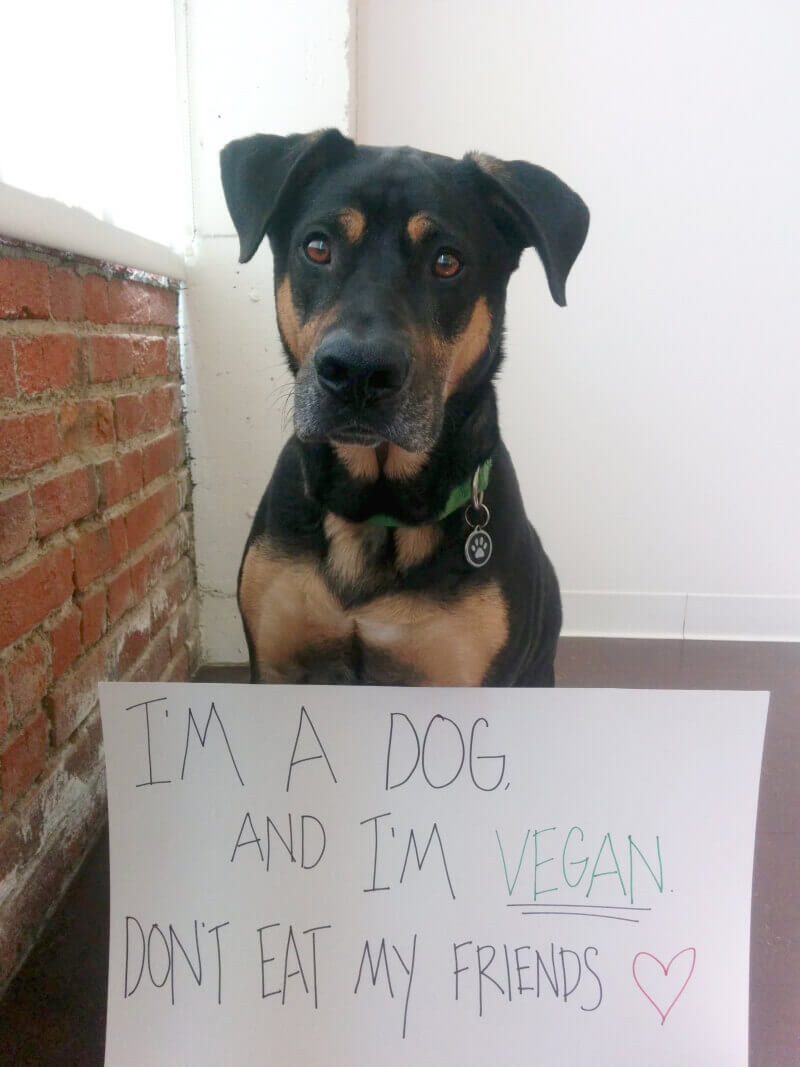 I'M A DOG,
AND I'M VEGAN.
DON'T EAT MY FRIENDS